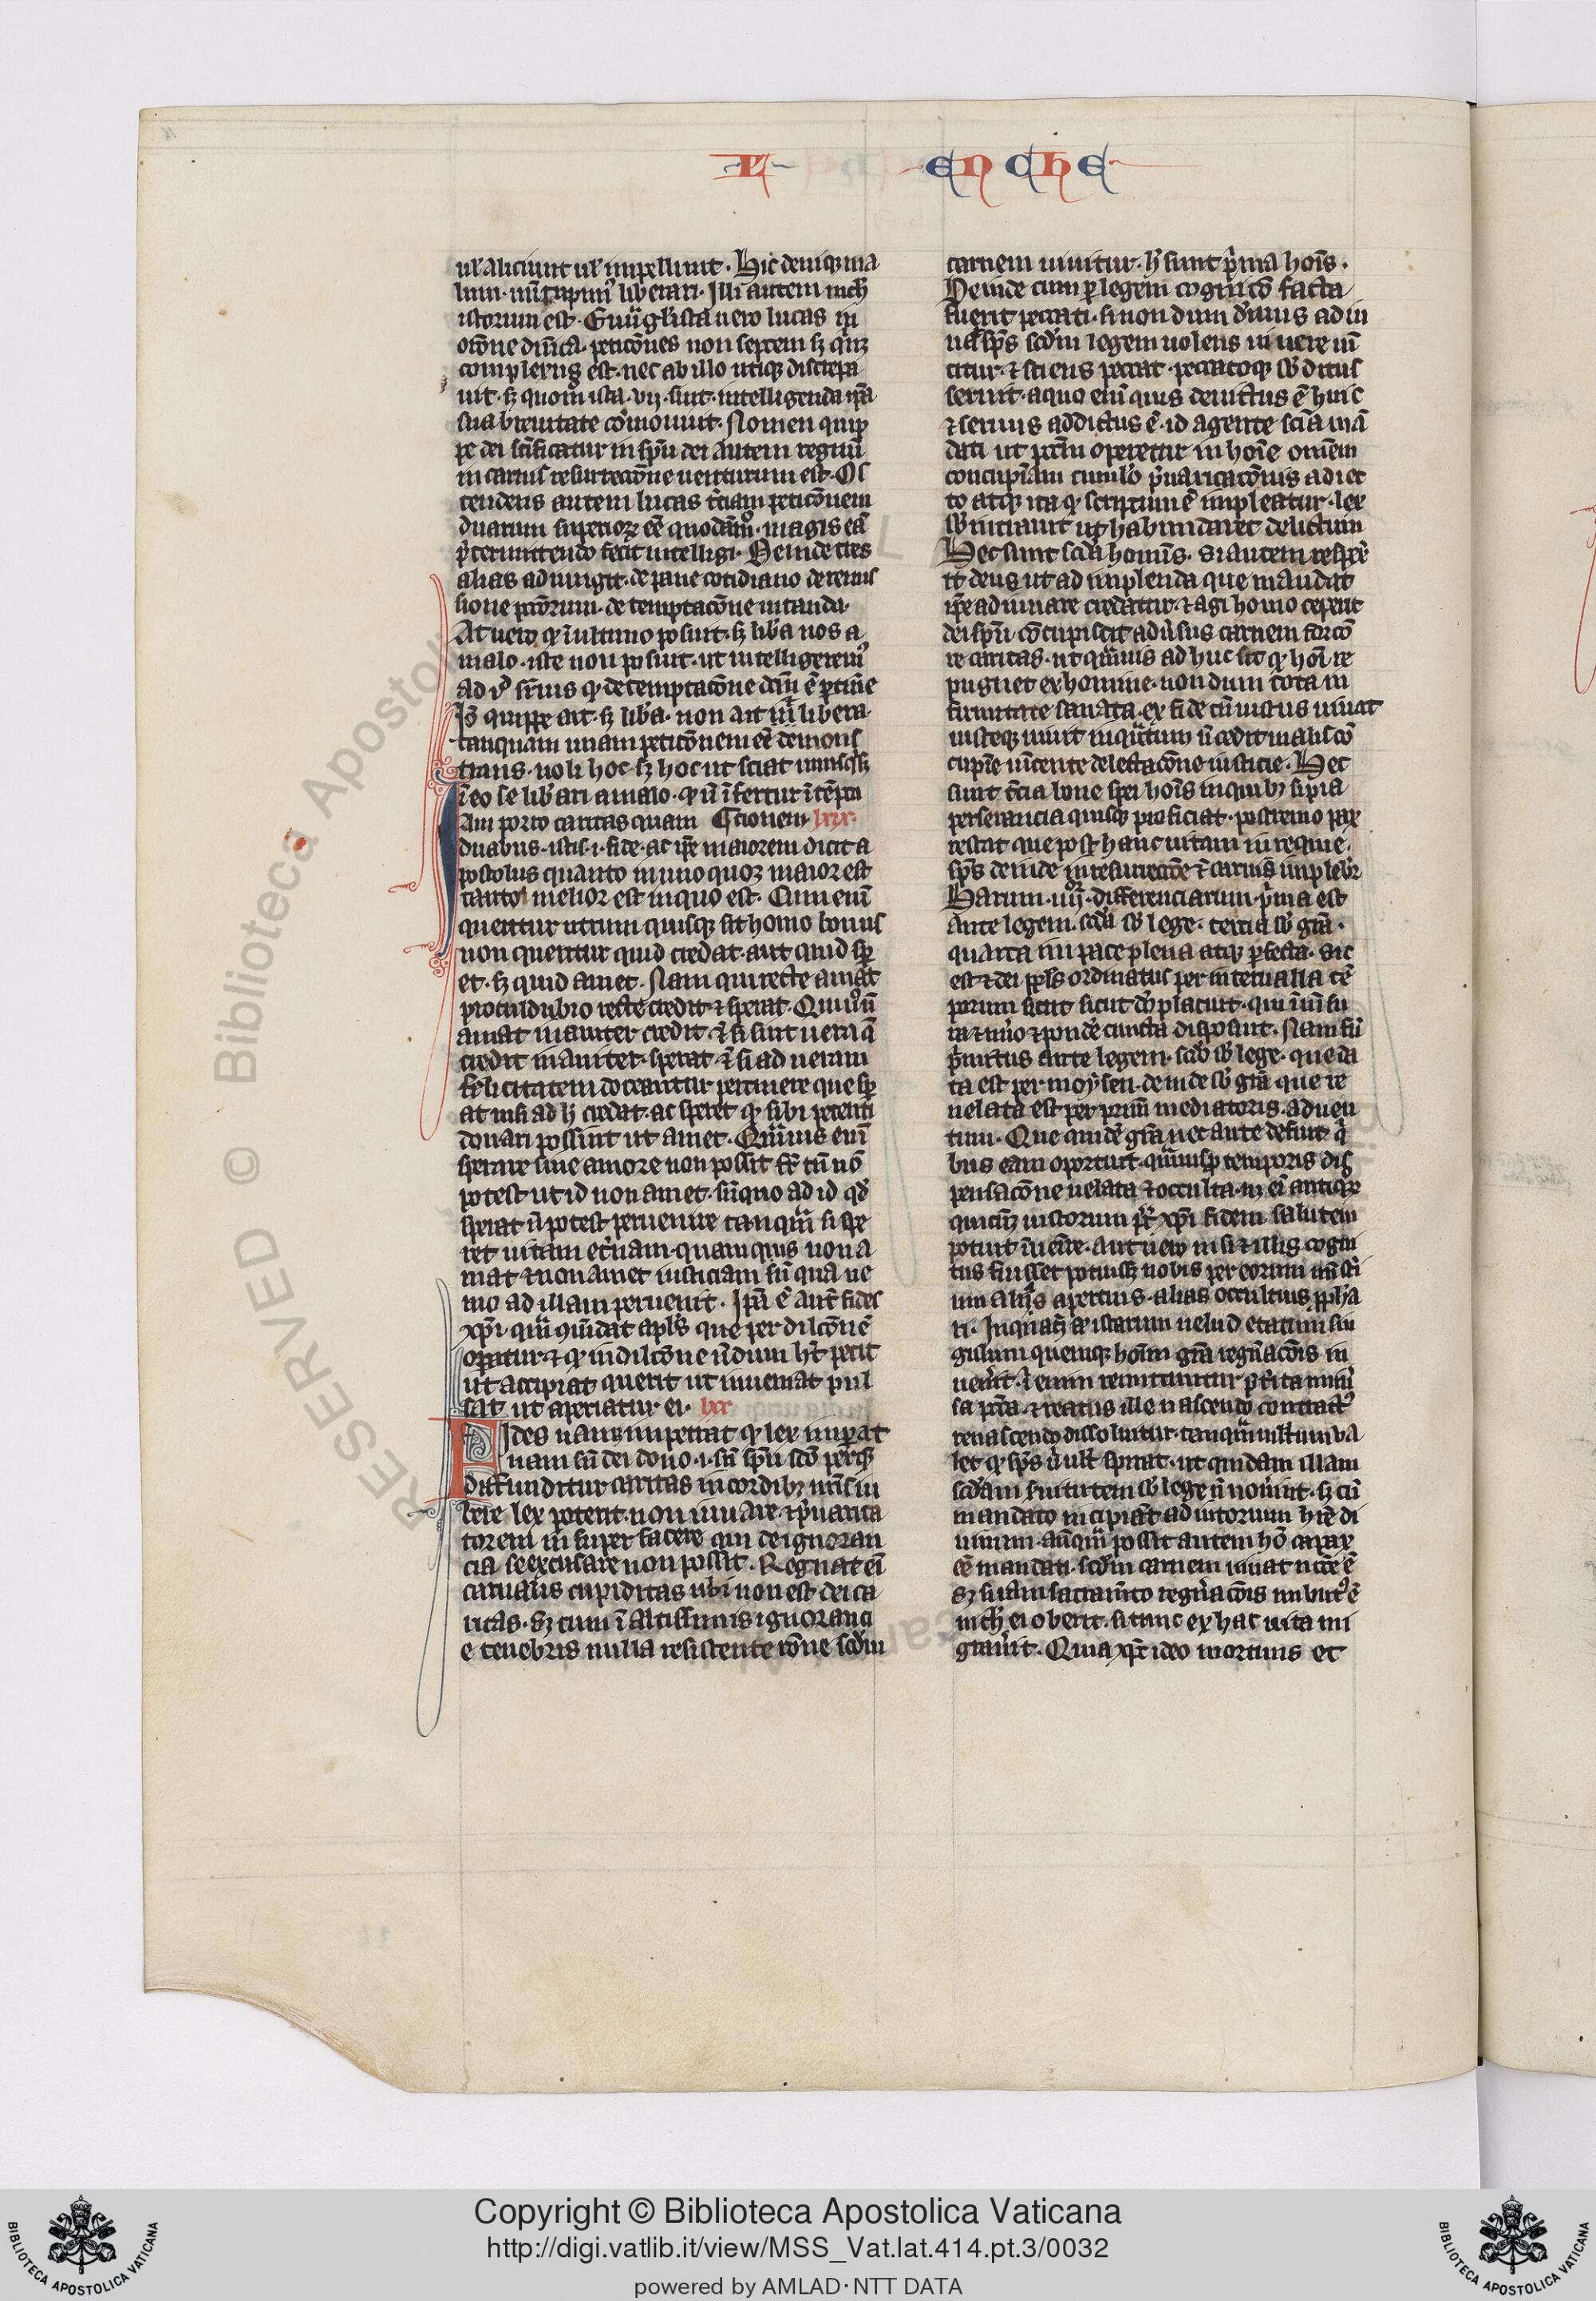 ·L· EN CHE
ul̄ aliciunt ul̄ impellunt. Hic deniqꝫ ma
lum. nūc cupim᷒ liberari. Illi autem nich̄
istorum est. Euuḡlista uero lucas in
or̄one dn̄ica. petic̄ones non septem sꝫ qn̄qꝫ
complexus est. nec ab illo utiqꝫ discrepa
uit. sꝫ quom̄ ista .vij. sint. intelligenda ip̄a
sua breuitate cōmonuit. Nomen quip
pe dei sc̄ificatur in sp̄u dei autem regnū
in carnis resurrecc̄one uenturum est. Os
tendens autem lucas t̄ciam petic̄onem
duarum superioꝝ eē quodām̊. magis eā
p̄termittendo fecit intelligi. Deinde tres
alias adiungit. de pane cotidiano de remis
sione pcc̄orum. de temptac̄one uitanda.
At uero qꝫ ī ultimo posuit. sꝫ lib̄a nos a
malo. iste non posuit. ut intelligerem᷒
ad id sup̄ius qꝫ de temptac̄one dc̄m ē p̄tin̄e
Iō quippe ait. sꝫ lib̄a. non ait ⁊ lib̄era.
tanquam unam petic̄onem eē demons
trans. noli hoc. sꝫ hoc ut sciat unusqꝫ
ī eo se lib̄ari a malo. qꝫ n̄ īfertur ī tēpta
Am porro caritas quam ¶ cionem. lxx.
duabus. istis .i. fide. ac spe maiorem dicit a
postolus quanto in uno quoꝫ maior est
tanto melior est in quo est. Cum enī
queritur utrum quisqꝫ sit homo bonus
non queritur quid credat. aut quid sper
et. sꝫ quid amet. Nam qui recte amat
proculdubio recte credit ⁊ sperat. Qui ů n̄
amat inaniter credit. ⁊ si sint uera q̄
credit inaniter. sperat. ⁊ si ad ueram
felicitatem doceantur pertinere que sper
at nisi ad h̄ credat. ac speret qꝫ sibi petenti
donari possint ut amet. Qm̄uis enī
sperare sine amore non possit. fit tn̄ nō
potest ut id non amet. sine quo ad id qd̄
sperat n̄ potest peruenire tanqm̄ si spe
ret uitam et̄nam. quam quis non a
mat ⁊ non amet iusticiam sine qua ne
mo ad illam peruenit. Ip̄a ē aut̄ fides
xp̄i. qm̄ cōm̄dat apl̄s que per dilc̄onē
op̄atur. ⁊ qꝫ in dilc̄one n̄dum h̄t petit
ut accipiat querit ut inueniat pul
sat ut aperiatur ei. lxx
Fides namqꝫ impetrat qꝫ lex imp̄at
nam sn̄ dei dono .i. sn̄ sp̄u sc̄o per quē
diffunditur caritas in cordibꝫ nr̄is iu
bere lex poterit. non iuuare. ⁊ p̄uarica
torem in super facere qui de ignoran
cia se excusare non possit. Regnat eī
carnalis cupiditas ubi non est dei ca
ritas. Sꝫ cum ī altissimis ignoranci
e tenebris nulla resistente r̄one sc̄dm
carnem uiuitur. h̄ sunt p̄ma hoīs.
Deinde cum p̱ legem cognic̄o facta
fuerit peccati. si nondum diuinus adiu
uat sp̄s sc̄dm legem uolens uiuere uī
citur. ⁊ sciens peccat. peccatoqꝫ sb̄ditus
seruit. a quo enī quis deuictus ē huic
⁊ seruus addictus ē. id agente scīa mā
dati ut pcc̄m operetur in hoīe om̄em
concup̄iam cumulo p̄uaricac̄onis adiec
to atqꝫ ita qꝫ scriptum ē impleatur. lex
sb̄intrauit ut habundaret delictum
Hec sunt sc̄da hominis. si autem respex̄
it deus ut ad implenda que mandat
ip̄e adiuuare credatur. ⁊ agi homo ceperit
dei sp̄u cōcupiscit adūsus carnem forcō
re caritas. ut qm̄uis ad huc sit qꝫ hoī re
pugnet ex homine. nondum tota in
firmitate sanata. ex fide tn̄ iustus uiuat
iusteqꝫ uiuit inqn̄tum n̄ cedit male cō
cupīe uincente delectac̄one iusticie. Hec
sunt t̄cia bone spei hoīs in quibꝫ si pia
perseuerancia quisqꝫ proficiat. postremo pax
restat que post hanc uitam in requie.
sp̄s deinde in resurrecc̄oē ⁊ carnis implebr̄
Harum .iiij. differenciarum. p̄ma est
ante legem. sc̄da sb̄ lege. tercia sb̄ gr̄a.
quarta in pace plena atqꝫ p̄fecta. Sic
est ⁊ dei pp̄ls ordinatus per interualla tē
porum sicut sicut do̅ placuit. qui ī mēsu
ra ⁊ nūo ⁊ pond̄e cuncta disposuit. Nam fuit
p̄mitus ante legem. sc̄do sb̄ lege. que da
ta est per moysen. deinde sb̄ gr̄a que re
uelata est per primū mediatoris aduen
tum. Que quid̄ē gr̄a nec ante defuit q̄
bus eam oportuit. qm̄uis p̱ temporis dis
pensac̄one uelata ⁊ occulta. nꝫ ei antiquoꝝ
quicūqꝫ iustorum p̱t̄ xp̄i fidem salutem
potuit īuenire. aut uero nisi ⁊ illis cogni
tus fuisset potuissꝫ nobis per eorum mīsteri
um aliq̄s apertius. alias occultius ꝓpha
ri. In quacūqꝫ aut istarum uelud etatum sin
gulum quemqꝫ hoīem gr̄a regn̄ac̄onis in
uen̄it. ī enim remittuntur p̄terita uniu̅
sa pcc̄a. ⁊ reatus ille nascendo contract᷒
renascendo dissoluitur. tanqm̄ multum ua
let qꝫ sp̄s u̅ uult spirat. ut quidam illam
sc̄dam seruitutem sb̄ lege n̄ nou̅int. sꝫ cū
mandato incipiāt adiutorium h̄re di
uinum. anteqm̄ possit autem hō capax
eē mandati. sc̄dm carnem uiuat nc̄ce ē
Sꝫ si iam sacram̄to regn̄ac̄onis imbut᷒ ē
nich̄ ei oberit. si tunc ex hac uita mi
grau̅it. Quia xp̄c ideo mortuus et
RESERVED © Biblioteca Apostolica Vaticana
Copyright © Biblioteca Apostolica Vaticana
http://digi.vatlib.it/view/MSS_Vat.lat.414.pt.3/0032
powered by AMLAD·NTT DATA
BIBLIOTECA APOSTOLICA VATICANA
BIBLIOTECA APOSTOLICA VATICANA